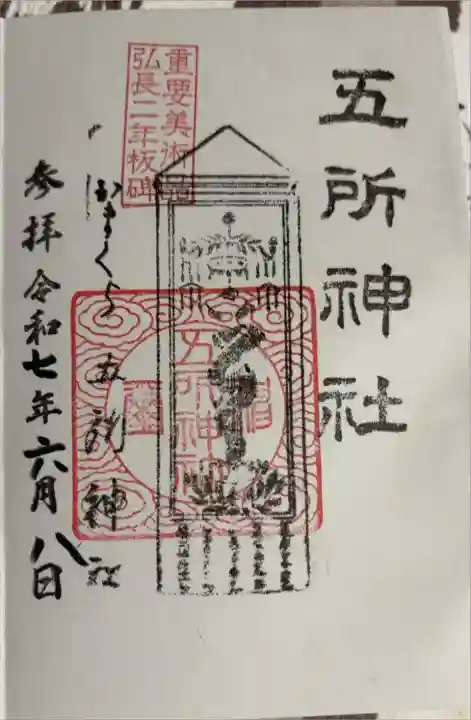 五所神社
重要美術品
弘長二年板碑
五所神社
かまくら 五所神社
参拝令和七年六月八日